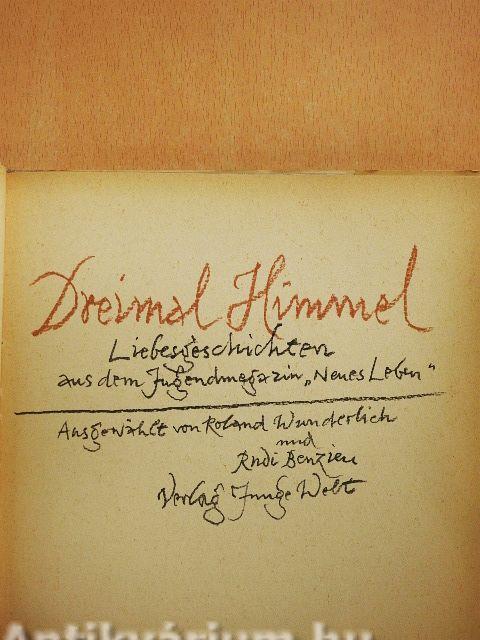 Dreimal Himmel
Liebesgeschichten
aus dem Jugendmagazin „Neues Leben“
Ausgewählt von Roland Wunderlich
und
Rudi Benzien
Verlag Junge Welt
Antikvárium.hu